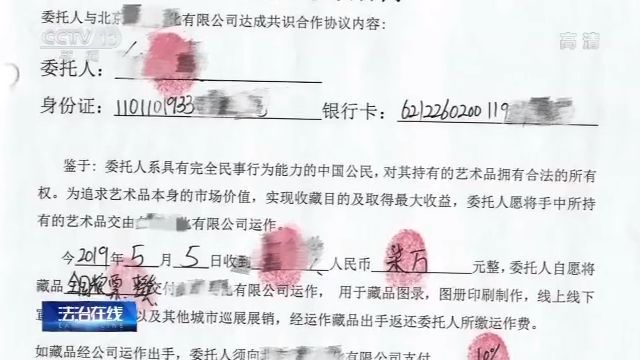 委托人与北京 化有限公司达成共识合作协议内容：
CCTV 13
新闻
高清
委托人：
身份证：1101101933 银行卡：6212260200119
鉴于：委托人系具有完全民事行为能力的中国公民，对其持有的艺术品拥有合法的所有
权。为追求艺术品本身的市场价值，实现收藏目的及取得最大收益，委托人愿将手中所持
有的艺术品交由 化有限公司运作。
今2019年5月5日收到 人民币柒万元整，委托人自愿将
藏品 票 交付 有限公司运作，用于藏品图录，图册印刷制作，线上线下
以及其他城市巡展展销，经运作藏品出手返还委托人所缴运作费。
法治在线
LAW ONLINE
如藏品经公司运作出手，委托人须向北 有限公司支付 10%